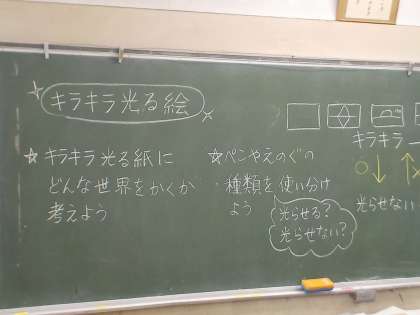 キラキラ光る絵
☆キラキラ光る紙に
どんな世界をかくか
考えよう
☆ペンやえのぐの
・種類を使い分け
よう
光らせる?
光らせない?
キラキラー
光らせない